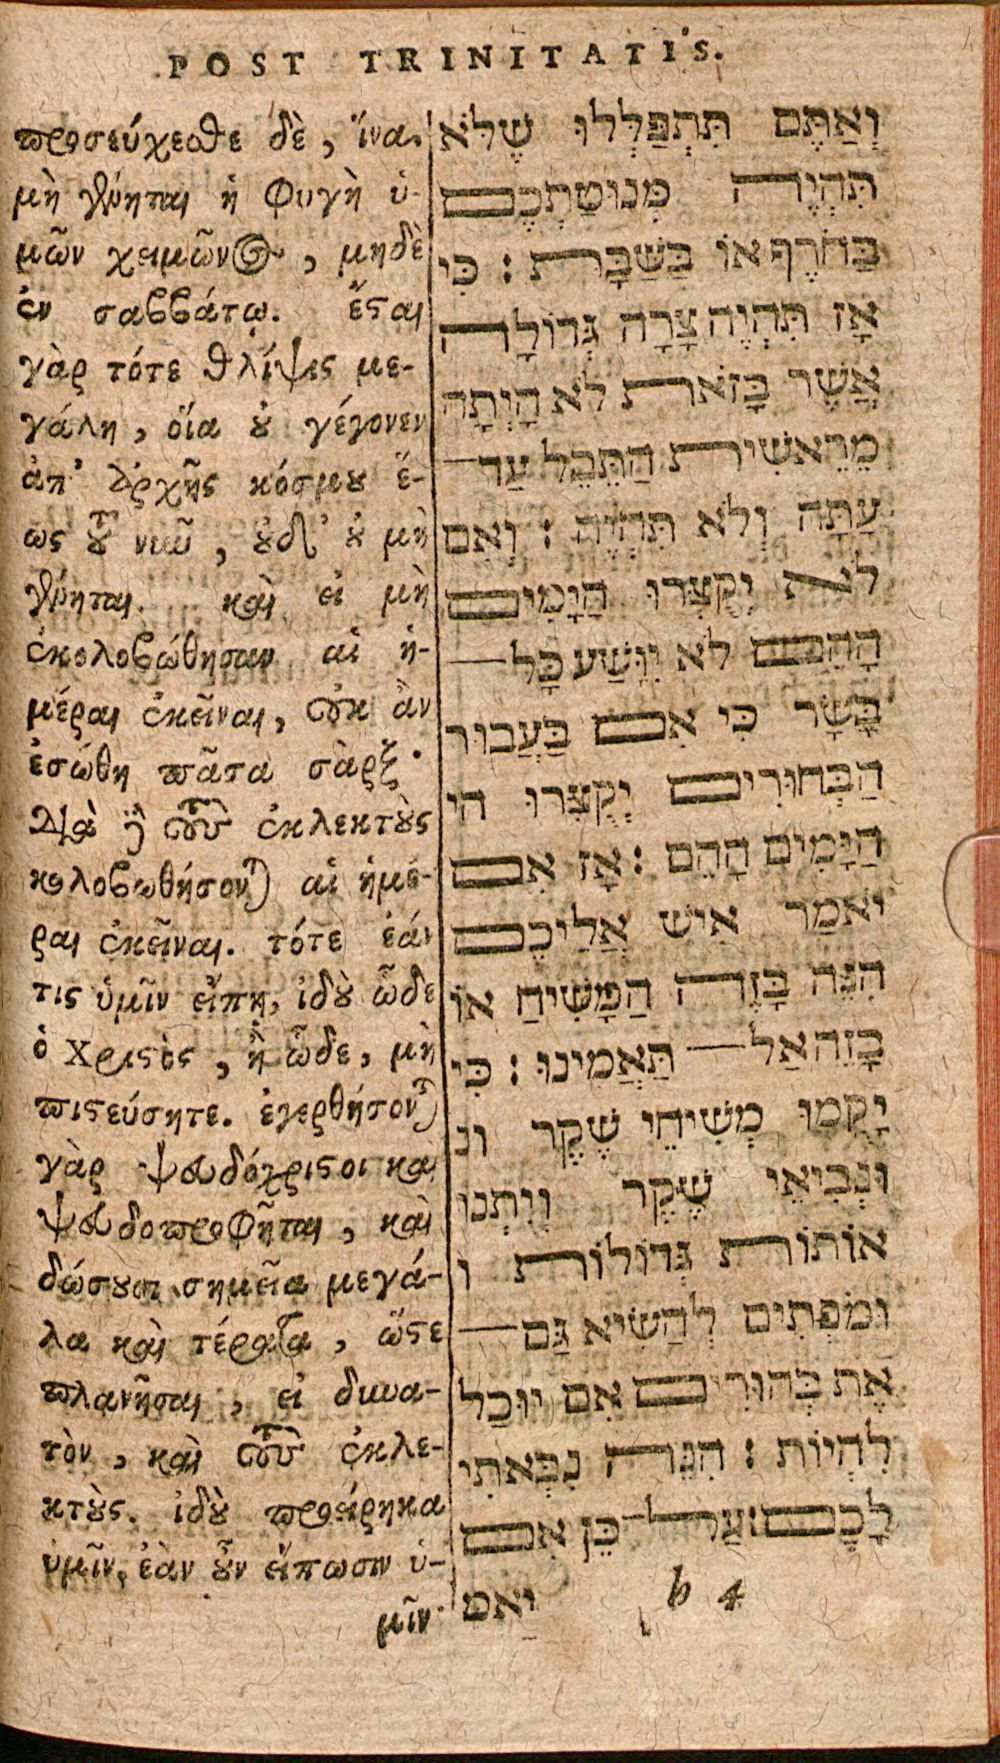 POST TRINITATIS.
προσεύχεσθε δὲ, ἵνα
μὴ γένηται ἡ φυγὴ ὑ-
μῶν χειμῶνος, μηδὲ
ἐν σαββάτῳ. ἔσται
γὰρ τότε θλίψις με-
γάλη, οἵα οὐ γέγονεν
ἀπ' ἀρχῆς κόσμου ἕ-
ως τοῦ νιῦ, οὐδ' οὐ μὴ
γένηται. καὶ εἰ μὴ
ἐκολοβώθησαν αἱ ἡ-
μέραι ἐκεῖναι, οὐκ ἂν
ἐσώθη πᾶσα σὰρξ·
διὰ δὲ τοὺς ἐκλεκτοὺς
κολοβωθήσονται αἱ ἡμέ-
ραι ἐκεῖναι. τότε ἐάν
τις ὑμῖν εἴπῃ, ἰδοὺ ὧδε
ὁ Χριστὸς, ἢ ὧδε, μὴ
πιστεύσητε. ἐγερθήσονται
γὰρ ψευδόχριστοι καὶ
ψευδοπροφῆται, καὶ
δώσουσι σημεῖα μεγά-
λα καὶ τέρατα, ὥστε
πλανῆσαι, εἰ δυνα-
τὸν, καὶ τοὺς ἐκλε-
κτοὺς. ἰδοὺ προείρηκα
ὑμῖν, ἐὰν οὖν εἴπωσιν ὑ-
μῖν
וְאַתֶּם תִּתְפַּלְּלוּ שֶׁלֹּא
תִּהְיֶה מְנוּסַתְכֶם
בַּחֹרֶף אוֹ בַּשַּׁבָּת : כִּי
אָז תִּהְיֶה צָרָה גְּדוֹלָה
אֲשֶׁר כָּזֹאת לֹא הָיְתָה
מֵרֵאשִׁית הַתֵּבֵל עַד
עָתָּה וְלֹא תִּהְיֶה : וְאִם
לֹא יְקֻצְּרוּ הַיָּמִים
הָהֵם לֹא יִוָּשַׁע כָּל
בָּשָׂר כִּי אִם בַּעֲבוּר
הַבְּחוּרִים יְקֻצְּרוּ הי
הַיָּמִים הָהֵם : אָז אִם
יֹאמַר אִישׁ אֲלֵיכֶם
הִנֵּה בָּזֶה הַמָּשִׁיחַ אוֹ
בָּזֶה אַל תַּאֲמִינוּ : כִּי
יָקֻמוּ מְשִׁיחֵי שֶׁקֶר ונ
וּנְבִיאֵי שֶׁקֶר וְיִתְּנוּ
אוֹתוֹת גְּדוֹלוֹת ו
וּמֹפְתִים לְהַשִּׁיא גַּם
אֶת בְּחוּרִים אִם יוּכַל
לִהְיוֹת : הִנֵּה נִבֵּאתִי
לָכֶם : וְעַל כֵּן אִם
יֹאמ
b 4